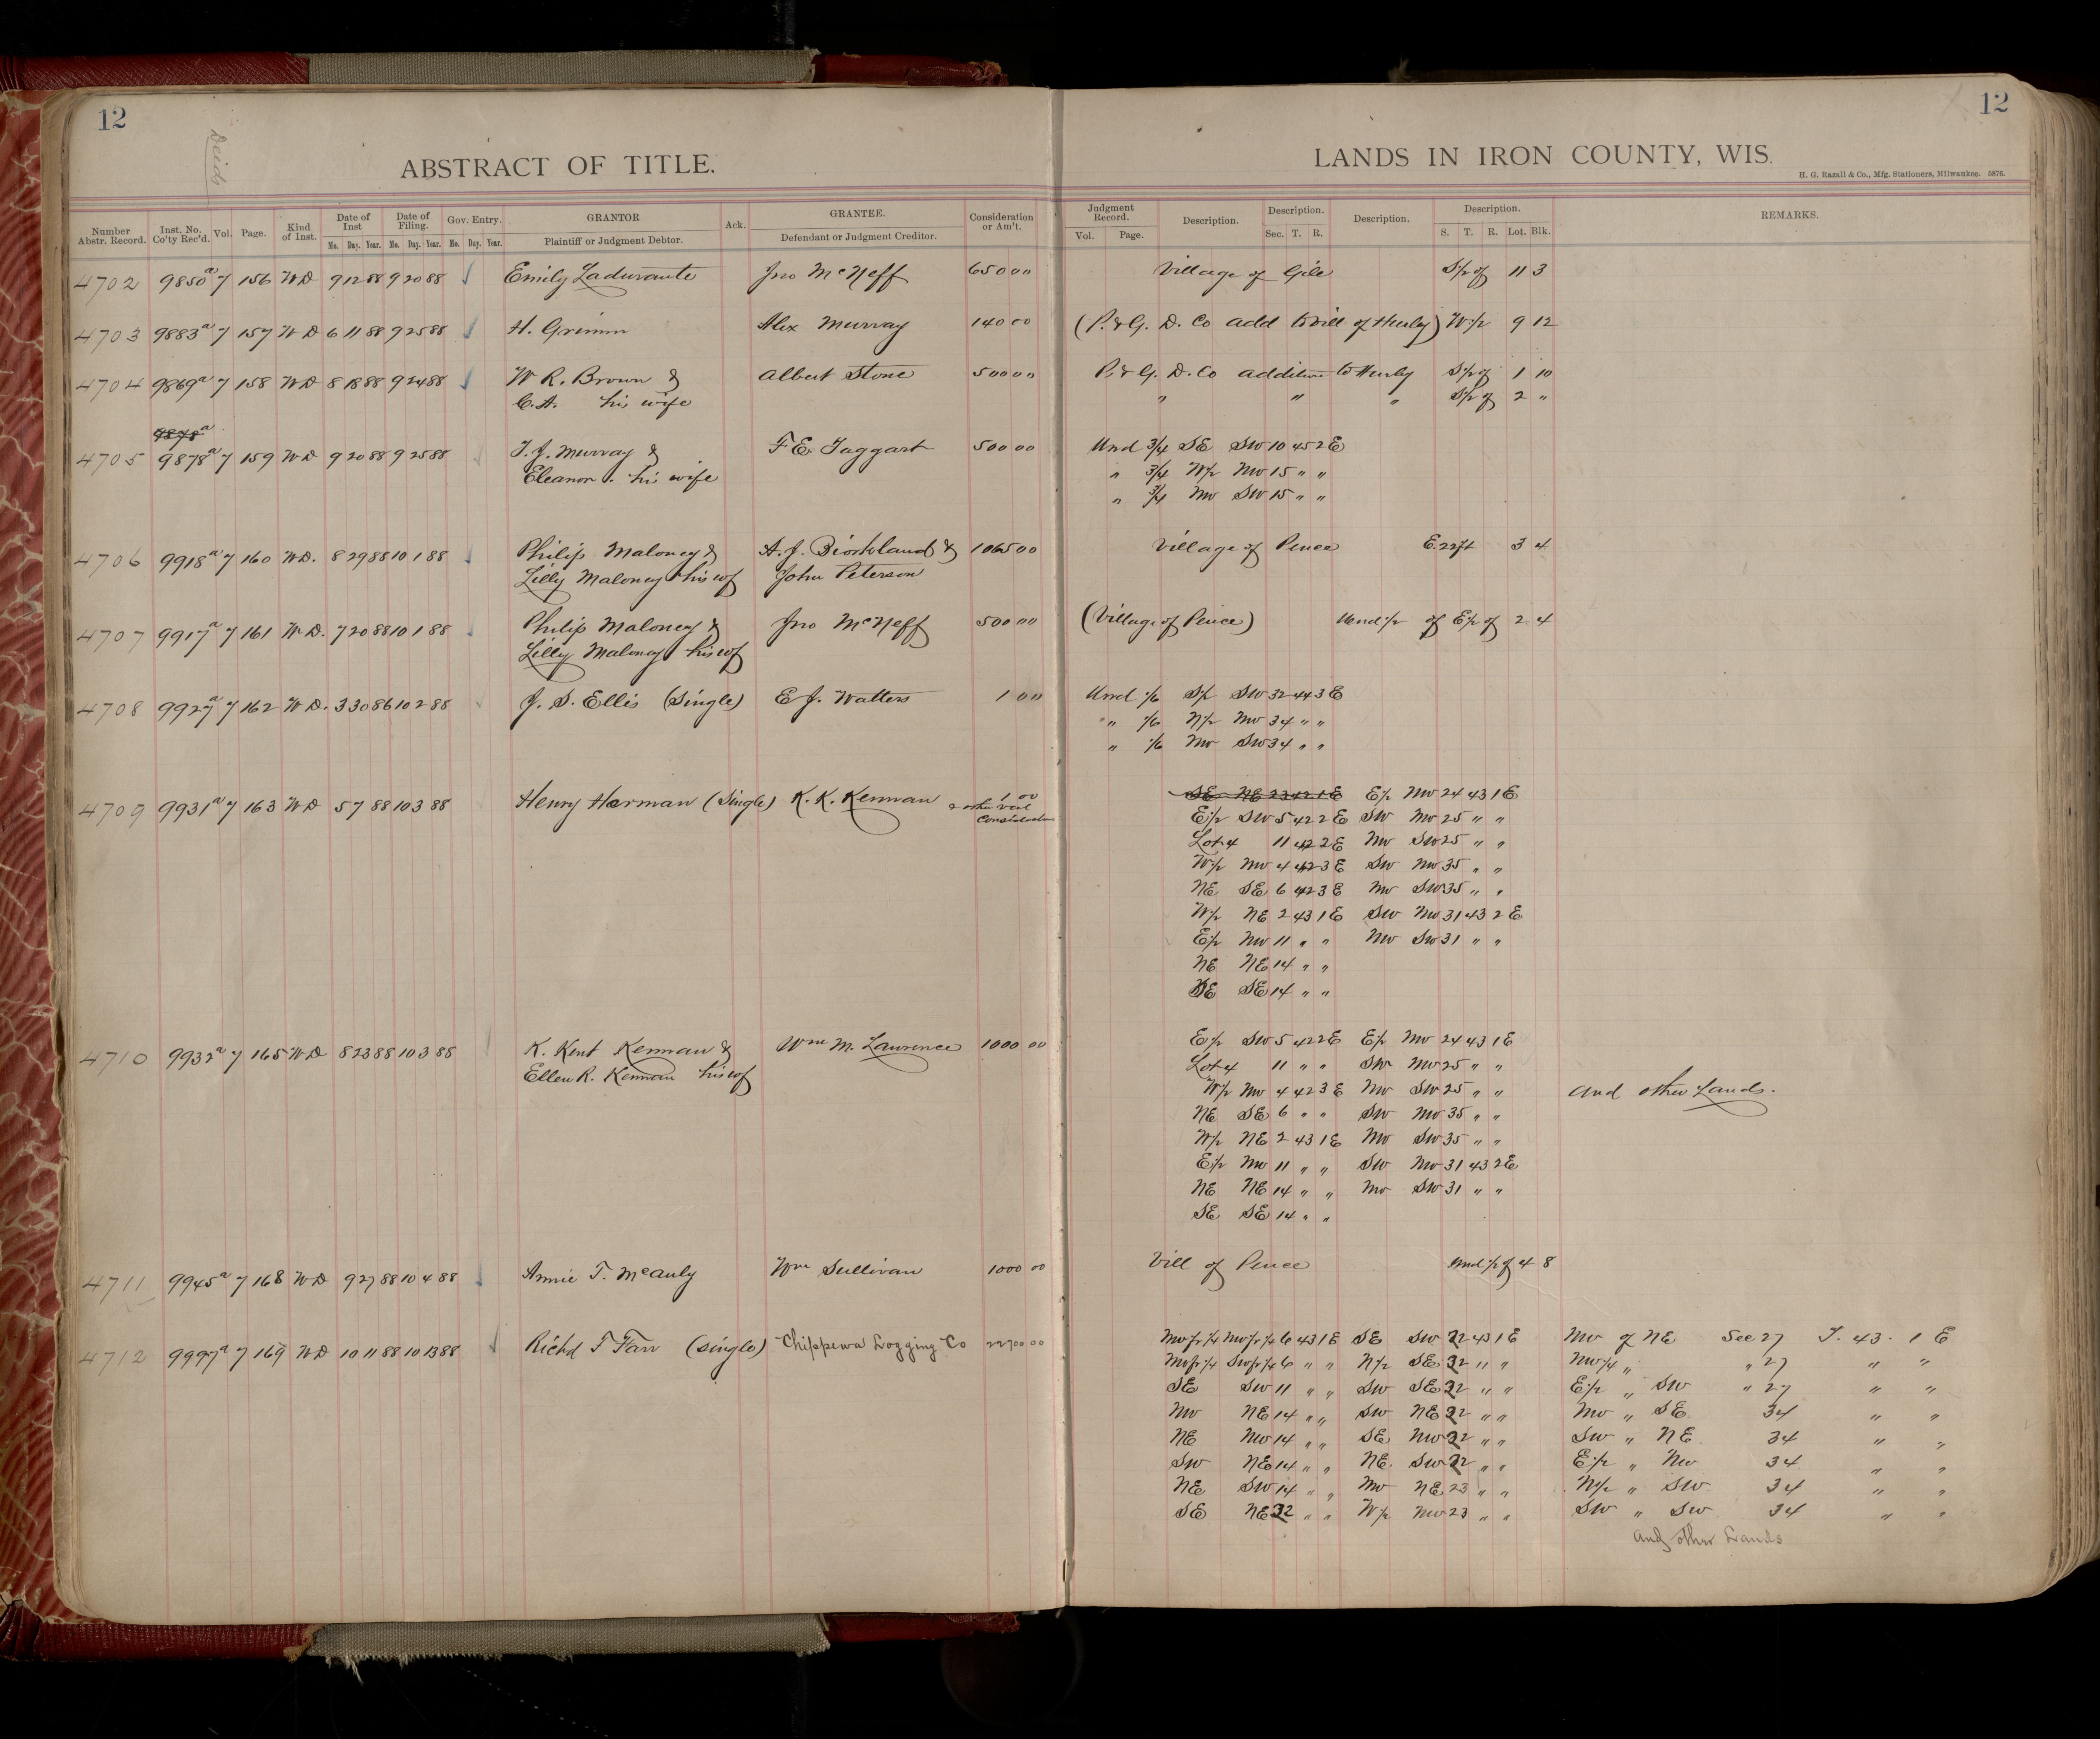 12
12
Deeds
ABSTRACT OF TITLE.
LANDS IN IRON COUNTY, WIS.
H. G. Razall & Co., Mfg. Stationers, Milwaukee. 5876.
Number Abstr. Record. Inst. No. Co'ty Rec'd. Vol. Page. Kind of Inst. Date of Inst Mo. Day. Year. Date of Filing. Mo. Day. Year. Gov. Entry. Mo. Day. Year. GRANTOR Plaintiff or Judgment Debtor. Ack. GRANTEE. Defendant or Judgment Creditor. Consideration or Am't. Judgment Record. Vol. Page. Description. Description. Sec. T. R. Description. Description. S. T. R. Lot. Blk. REMARKS.
4702 9850a 7 156 WD 9 12 88 9 20 88 Emily Ladurante Jno McNeff 650 00 Village of Gile S 1/2 of 11 3
4703 9883a 7 157 WD 6 11 88 9 25 88 H. Grimm Alex Murray 140 00 (P. & G. D. Co add to Vill of Hurley) W 1/2 9 12
4704 9869a 7 158 WD 8 18 88 9 24 88 W R. Brown & Albert Stone 500 00 P. & G. D. Co addition to Hurley S 1/2 of 1 10
C. A. his wife " " " S 1/2 of 2 "
9878a
4705 9878a 7 159 WD 9 20 88 9 25 88 T. J. Murray & F E Taggart 500 00 Und 3/4 SE SW 10 45 2 E
Eleanor his wife " 3/4 W 1/2 NW 15 " "
" 3/4 NW SW 15 " "
4706 9918a 7 160 WD. 8 29 88 10 1 88 Philip Maloney & A. J. Biorkland & 1065 00 Village of Pence E. 22 ft 3 4
Lilly Maloney his wf John Peterson
4707 9917a 7 161 WD. 7 20 88 10 1 88 Philip Maloney & Jno McNeff 500 00 (Village of Pence) Und 1/2 of E 1/2 of 2 4
Lilly Maloney his wf
4708 9927a 7 162 WD. 3 30 86 10 2 88 J. S. Ellis (Single) E J. Watters 1 00 Und 1/6 S 1/2 SW 32 44 3 E
" 1/6 N 1/2 NW 34 " "
" 1/6 NW SW 34 " "
4709 9931a 7 163 WD 5 7 88 10 3 88 Henry Herman (Single) K. K. Kennan 1 00 & other val Consideration SE NE 23 42 1 E E 1/2 NW 24 43 1 E
E 1/2 SW 5 42 2 E SW NW 25 " "
Lot 4 11 42 2 E NW SW 25 " "
W 1/2 NW 4 42 3 E SW NW 35 " "
NE SE 6 42 3 E NW SW 35 " "
W 1/2 NE 2 43 1 E SW NW 31 43 2 E
E 1/2 NW 11 " " NW SW 31 " "
NE NE 14 " "
SE SE 14 " "
4710 9932a 7 165 WD 8 23 88 10 3 88 K. Kent Kennan & Wm M. Lawrence 1000 00 E 1/2 SW 5 42 2 E E 1/2 NW 24 43 1 E
Ellen R. Kennan his wf Lot 4 11 " " SW NW 25 " "
W 1/2 NW 4 42 3 E NW SW 25 " " and other Lands.
NE SE 6 " " SW NW 35 " "
W 1/2 NE 2 43 1 E NW SW 35 " "
E 1/2 NW 11 " " SW NW 31 43 2 E
NE NE 14 " " NW SW 31 " "
SE SE 14 " "
4711 9945a 7 168 WD 9 27 88 10 4 88 Annie T. McAuly Wm Sullivan 1000 00 Vill of Pence und 1/2 of 4 8
4712 9997a 7 169 WD 10 11 88 10 13 88 Richd F Farr (single) Chippewa Logging Co 22700 00 NW fr 1/4 NW fr 1/4 6 43 1 E SE SW 22 43 1 E NW of NE Sec 27 T. 43. 1 E
NW fr 1/4 SW fr 1/4 6 " " N 1/2 SE 22 " " NW 1/4 " " 27 " "
SE SW 11 " " SW SE 22 " " E 1/2 " SW " 27 " "
NW NE 14 " " SW NE 22 " " NW " SE 34 " "
NE NW 14 " " SE NW 22 " " SW " NE 34 " "
SW NE 14 " " NE SW 22 " " E 1/2 " NW 34 " "
NE SW 14 " " NW NE 23 " " N 1/2 " SW 34 " "
SE NE 22 " " W 1/2 NW 23 " " SW " SW 34 " "
and other Lands